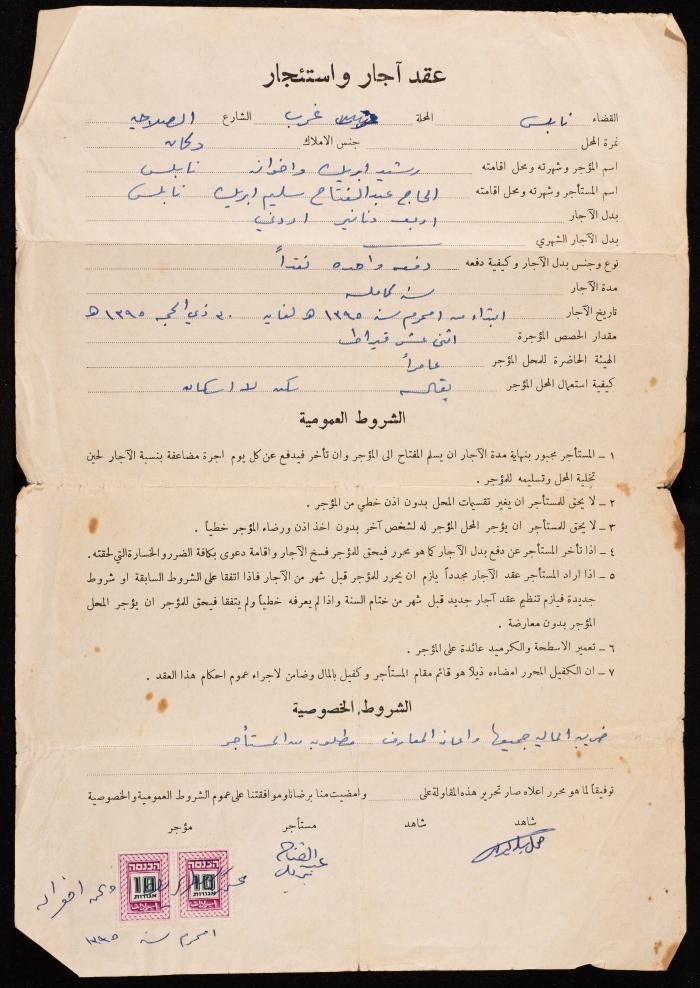 عقد آجار واستئجار
القضاء نابلس المحلة غرب الشارع الصلاحيه
نمرة المحل جنس الاملاك دكان
اسم المؤجر وشهرته ومحل اقامته رشيد ابريك واخوانه نابلس
اسم المستأجر وشهرته ومحل اقامته الحاج عبد الفتاح سليم ابريك نابلس
بدل الآجار اربعة دنانير اردني
بدل الآجار الشهري
نوع وجنس بدل الآجار وكيفية دفعه دفعه واحده نقداً
مدة الآجار سنه كامله
تاريخ الآجار ابتداء من ١ محرم سنه ١٣٩٥ هـ لغاية ٣٠ ذي الحجه ١٣٩٥ هـ
مقدار الحصص المؤجرة اثنى عشر قيراط
الهيئة الحاضرة للمحل المؤجر عامراً
كيفية استعمال المحل المؤجر بقاله سكن لا اسكان
الشروط العمومية
١ – المستأجر مجبور بنهاية مدة الآجار ان يسلم المفتاح الى المؤجر وان تأخر فيدفع عن كل يوم اجرة مضاعفة بنسبة الآجار لحين
تخلية المحل وتسليمه للمؤجر .
٢ – لا يحق للمستأجر ان يغير تقسيمات المحل بدون اذن خطي من المؤجر .
٣ – لا يحق للمستأجر ان يؤجر المحل المؤجر له لشخص آخر بدون اخذ اذن ورضاء المؤجر خطياً .
٤ – اذا تأخر المستأجر عن دفع بدل الآجار كما هو محرر فيحق للمؤجر فسخ الآجار واقامة دعوى بكافة الضرر والخسارة التي لحقته .
٥ – اذا اراد المستأجر عقد الآجار مجدداً يلزم ان يحرر للمؤجر قبل شهر من الآجار فاذا اتفقا على الشروط السابقة او شروط
جديدة فيلزم تنظيم عقد آجار جديد قبل شهر من ختام السنة واذا لم يعرفه خطياً ولم يتفقا فيحق للمؤجر ان يؤجر المحل
المؤجر بدون معارضة .
٦ – تعمير الاسطحة والكرميد عائدة على المؤجر .
٧ – ان الكفيل المحرر امضاءه ذيلا هو قائم مقام المستأجر وكفيل بالمال وضامن لاجراء عموم احكام هذا العقد .
الشروط الخصوصية
ضريبة المالية جميعها واعانة المعارف مطلوبه من المستأجر
توفيقاً لما هو محرر اعلاه صار تحرير هذه المقاولة على وامضيت منا برضانا وموافقتنا على عموم الشروط العمومية والخصوصية
شاهد شاهد مستأجر مؤجر
عبد الفتاح
ابريك
הכנסה הכנסה
10 10
אגורות אגורות
وعن اخوانه
١ محرم سنه ١٣٩٥